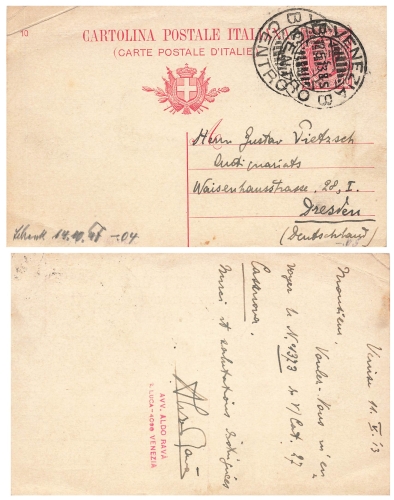 10
CARTOLINA POSTALE ITALIANA
(CARTE POSTALE D'ITALIE)
VENEZIA
CENTRO
Herrn Gustav Pietzsch
Antiquariats
Waisenhausstrasse. 28, I.
Dresden
(Deutschland)
-.04
Venise 11. V. 13
Monsieur,
Voulez-vous m'en-
voyer le N. 4373 de V/ Cat. 27
Casanova.
Merci et salutations distinguées
Aldo Ravà
AVV. ALDO RAVÀ
S. LUCA - 4098 VENEZIA